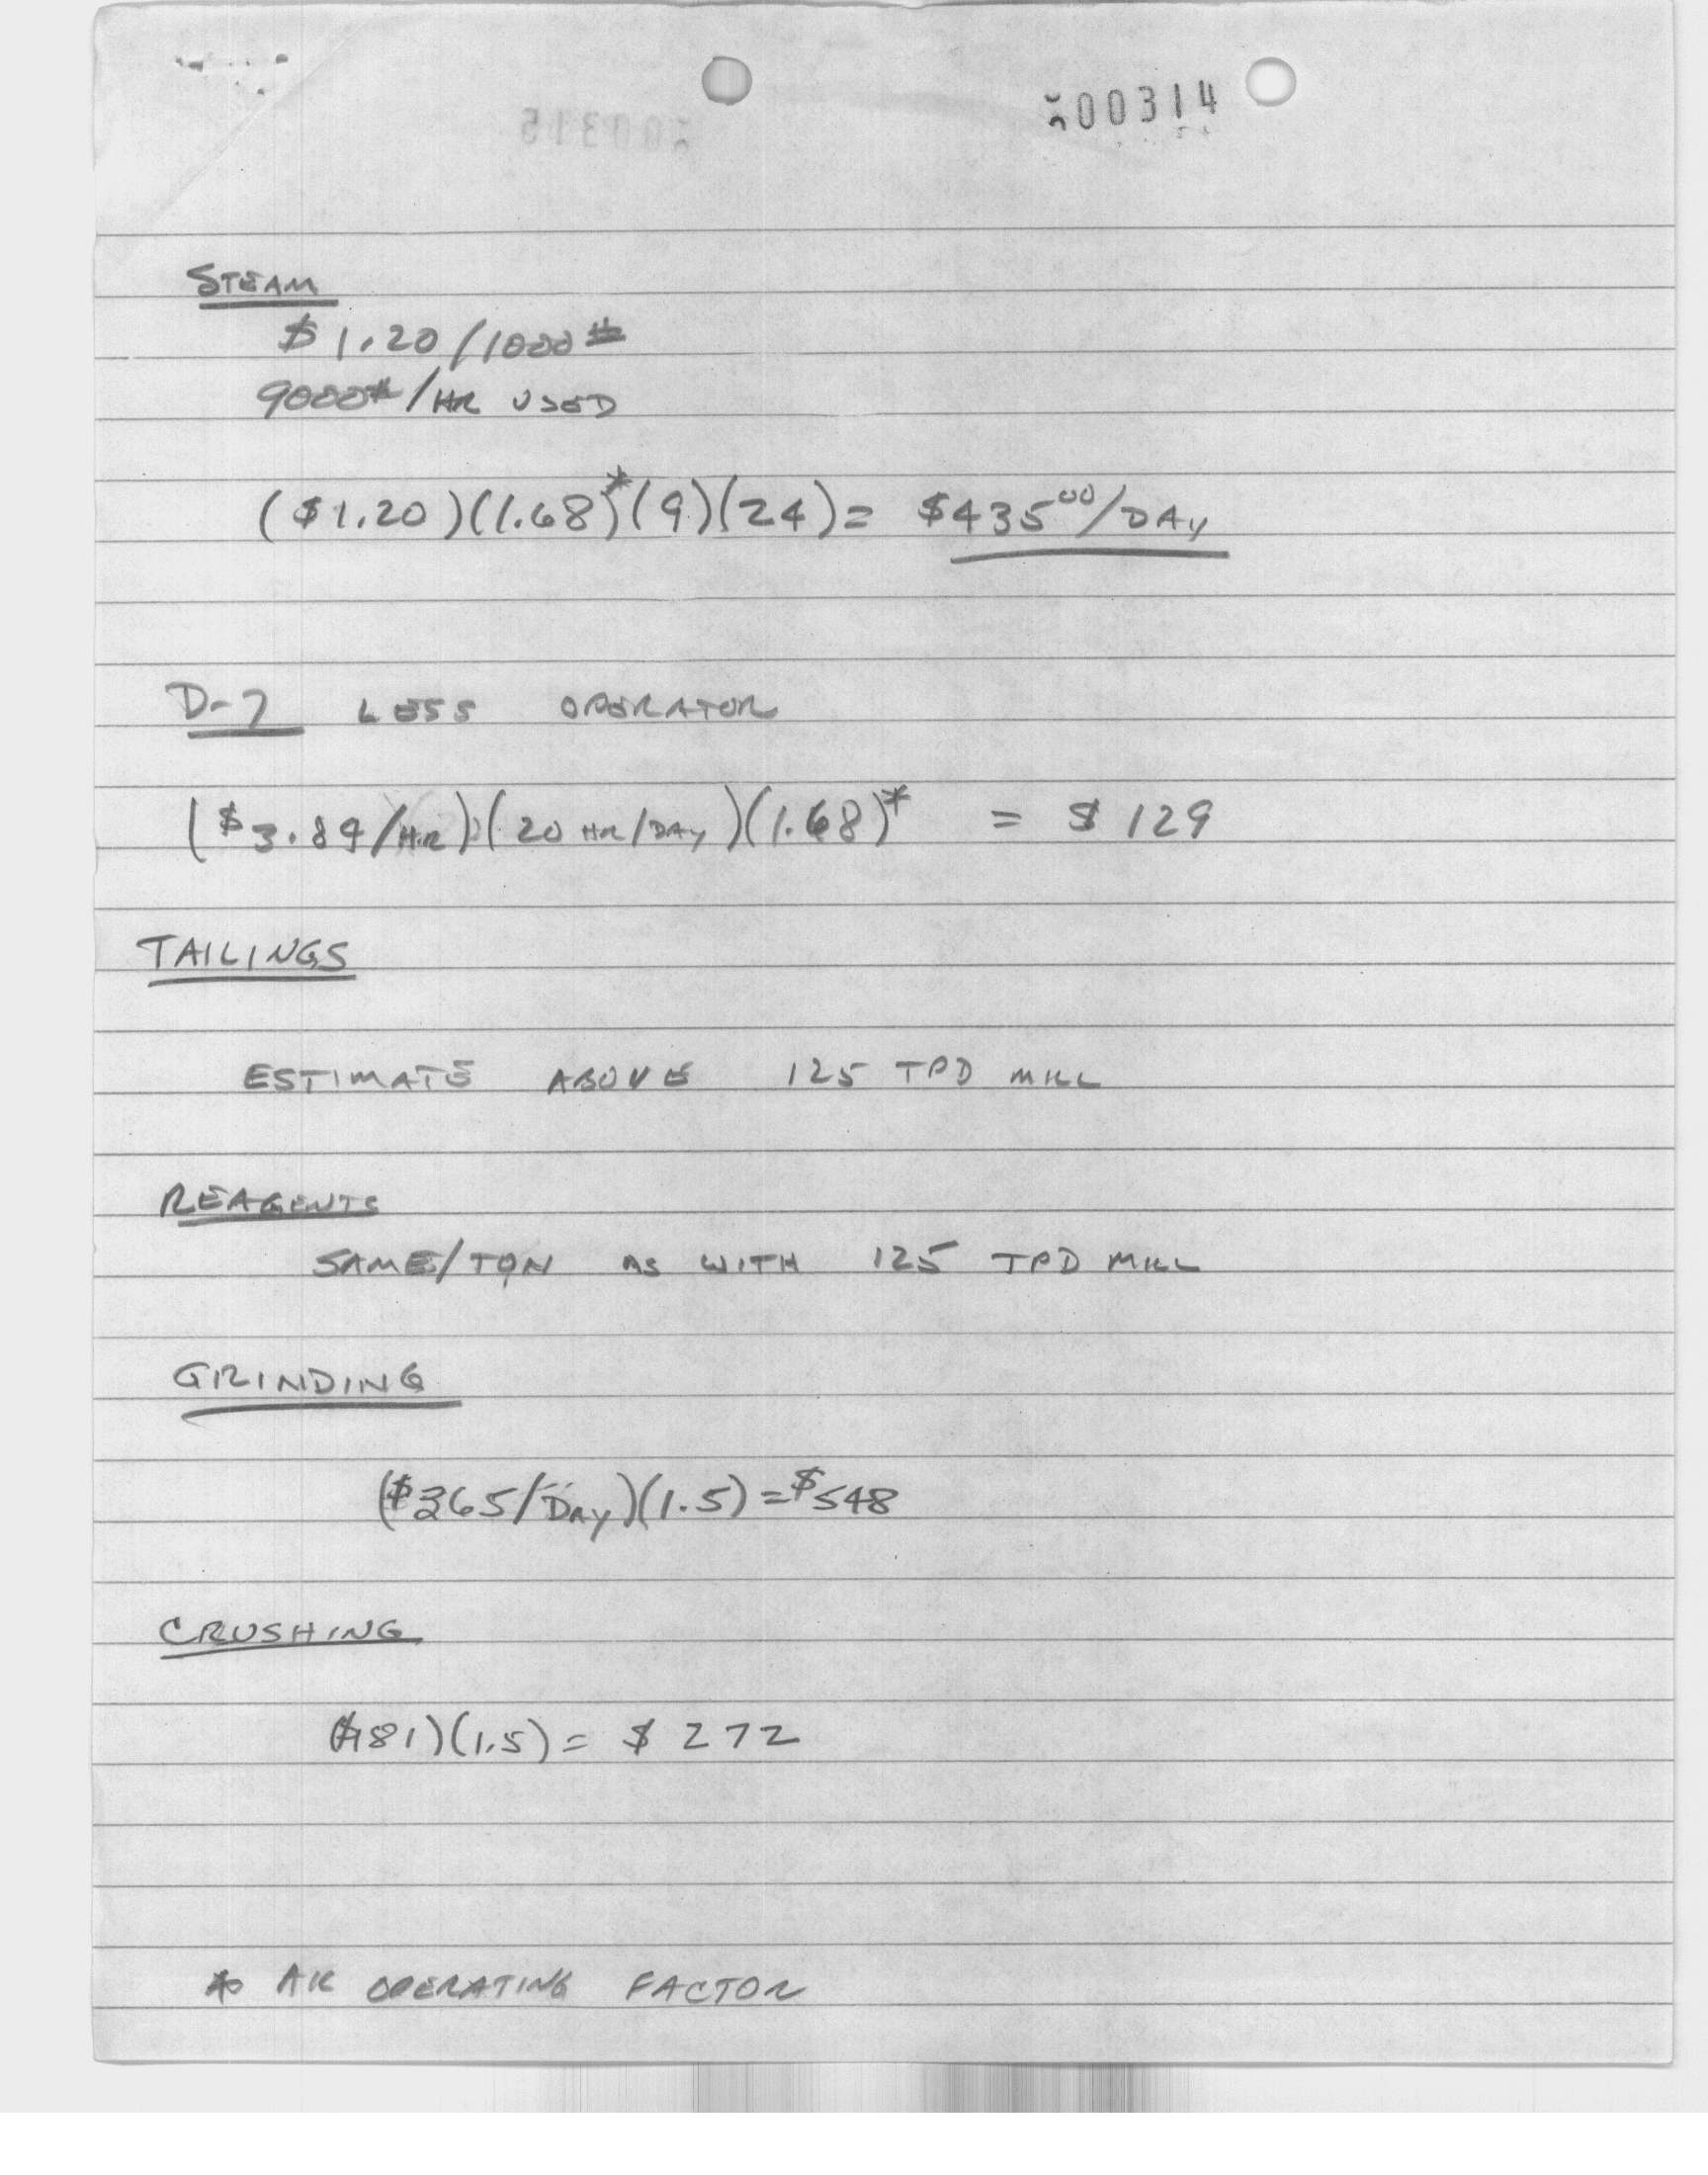 00314
STEAM
$1.20/1000#
9000#/HR USED
($1.20)(1.68)*(9)(24)= $435⁰⁰/DAY
D-7 LESS OPERATOR
($3.84/HR)(20 HR/DAY)(1.68)* = $129
TAILINGS
ESTIMATE ABOVE 125 TPD MILL
REAGENTS
SAME/TON AS WITH 125 TPD MILL
GRINDING
($365/DAY)(1.5)=$548
CRUSHING
($181)(1.5)= $272
* AK OPERATING FACTOR